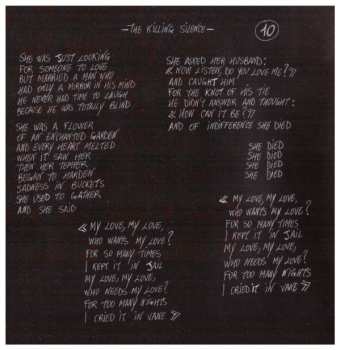 —THE KILLING SILENCE—
10
SHE WAS JUST LOOKING
FOR SOMEONE TO LOVE
BUT MARRIED A MAN WHO
HAD ONLY A MIRROR IN HIS MIND
HE NEVER HAD TIME TO LAUGH
BECAUSE HE WAS TOTALLY BLIND
SHE WAS A FLOWER
OF AN ENCHANTED GARDEN
AND EVERY HEART MELTED
WHEN IT SAW HER
THEN HER TEMPER
BEGAN TO HARDEN
SADNESS IN BUCKETS
SHE USED TO GATHER
AND SHE SAID
« MY LOVE, MY LOVE,
WHO WANTS MY LOVE?
FOR SO MANY TIMES
I KEPT IT IN JAIL
MY LOVE, MY LOVE,
WHO NEEDS MY LOVE?
FOR TOO MANY NIGHTS
I CRIED IT IN VANE »
SHE ASKED HER HUSBAND:
« NOW LISTEN, DO YOU LOVE ME? »
AND CAUGHT HIM
FOR THE KNOT OF HIS TIE
HE DIDN'T ANSWER AND THOUGHT:
« HOW CAN IT BE? »
AND OF INDIFFERENCE SHE DIED
SHE DIED
SHE DIED
SHE DIED
SHE DIED
« MY LOVE, MY LOVE,
WHO WANTS MY LOVE?
FOR SO MANY TIMES
I KEPT IT IN JAIL
MY LOVE, MY LOVE,
WHO NEEDS MY LOVE?
FOR TOO MANY NIGHTS
I CRIED IT IN VANE »